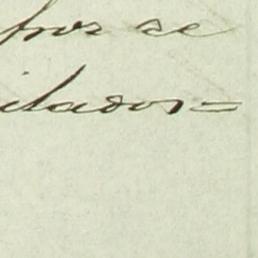 por se
ilados=